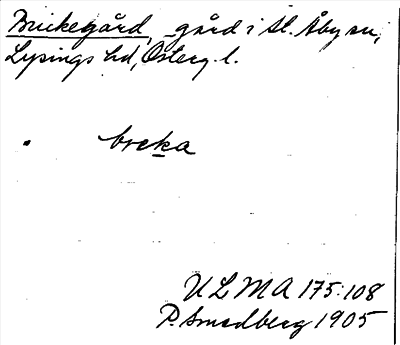 Brickegård, gård i St. Åby sn,
Lysings hd, Österg. l.
breka
ULMA 175:108
P. Smedberg 1905